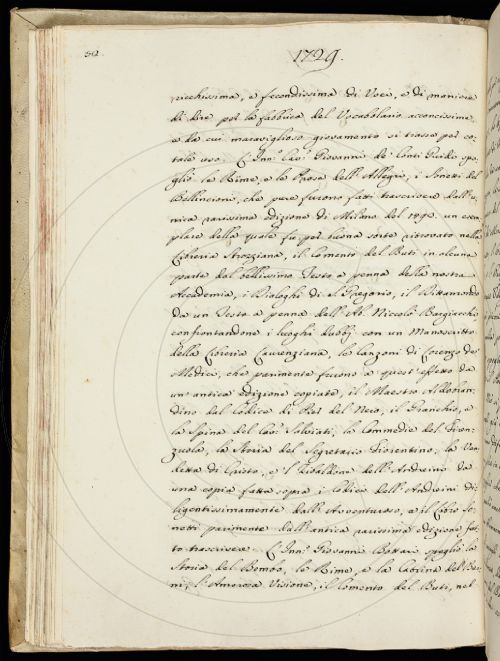 1729.
ricchissima, e fecondissima di Voci, e di maniere
di dire per la fabbrica del Vocabolario acconcissime,
e da cui maraviglioso giovamento si trasse per co-
tale uso. L'Inn.º Cav.º Giovanni de' Conti Guidi spo-
gliò le Rime, e le Prose dell'Allegri, i Sonetti del
Bellincioni, che pure furono fatti trascrivere dall'u-
nica rarissima edizione di Milano del 1493. un esem-
plare della quale fu per buona sorte ritrovato nella
Libreria Strozziana, il Comento del Buti in alcuna
parte dal bellissimo Testo a penna della nostra
Accademia, i Dialoghi di S. Gregorio, il Dittamondo
da un Testo a penna dell'Ab. Niccolò Bargiacchi
confrontandone i luoghi dubbj con un Manoscritto
della Libreria Laurenziana, le Canzoni di Lorenzo de'
Medici, che parimente furono a quest'effetto da
un'antica edizione copiate, il Maestro Aldobran-
dino dal Codice di Pier del Nero, il Granchio, e
la Spina del Cav. Salviati, le Commedie del Firen-
zuola, le Storie del Segretario Fiorentino, la Ven-
detta di Cristo, e 'l Zibaldone dell'Andreini da
una copia fatta sopra i Codici dell'Andreini di-
ligentissimamente dall'Avventuroso, e il Libro So-
netti parimente dall'antica rarissima edizione fat-
to trascrivere. L'Inn.º Giovanni Bottari spogliò le
Storie del Bembo, le Rime, e la Catrina del Ber-
ni, l'Amorosa Visione, il Comento del Buti, nel